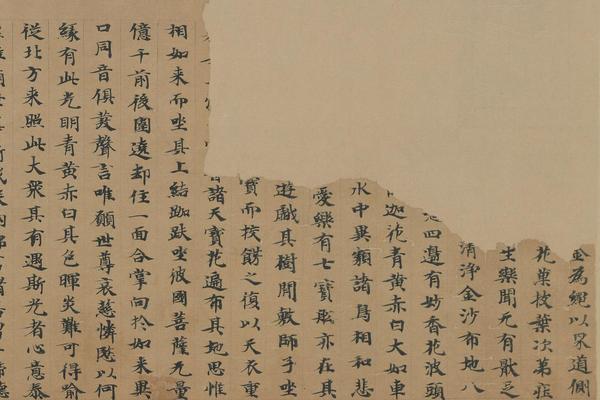 金為繩以界道側
花菓枝葉次第莊
生樂聞无有猒乏
清淨金沙布地八
池四邊有妙香花波頭
迦花青黃赤白大如車
水中異類諸鳥相和悲
愛樂有七寶舩亦在其
遊戲其樹間敷師子坐
寶而挍餝之復以天衣重
諸天寶花遍布其地思惟
相如来而坐其上結跏趺坐彼國菩薩无量
億千前後圍遶却住一面合掌向扵如来異
口同音俱發聲言唯願世尊哀慈憐愍以何
緣有此光明青黃赤白其色暉炎難可得喻
從北方来照此大衆其有遇斯光者心意泰